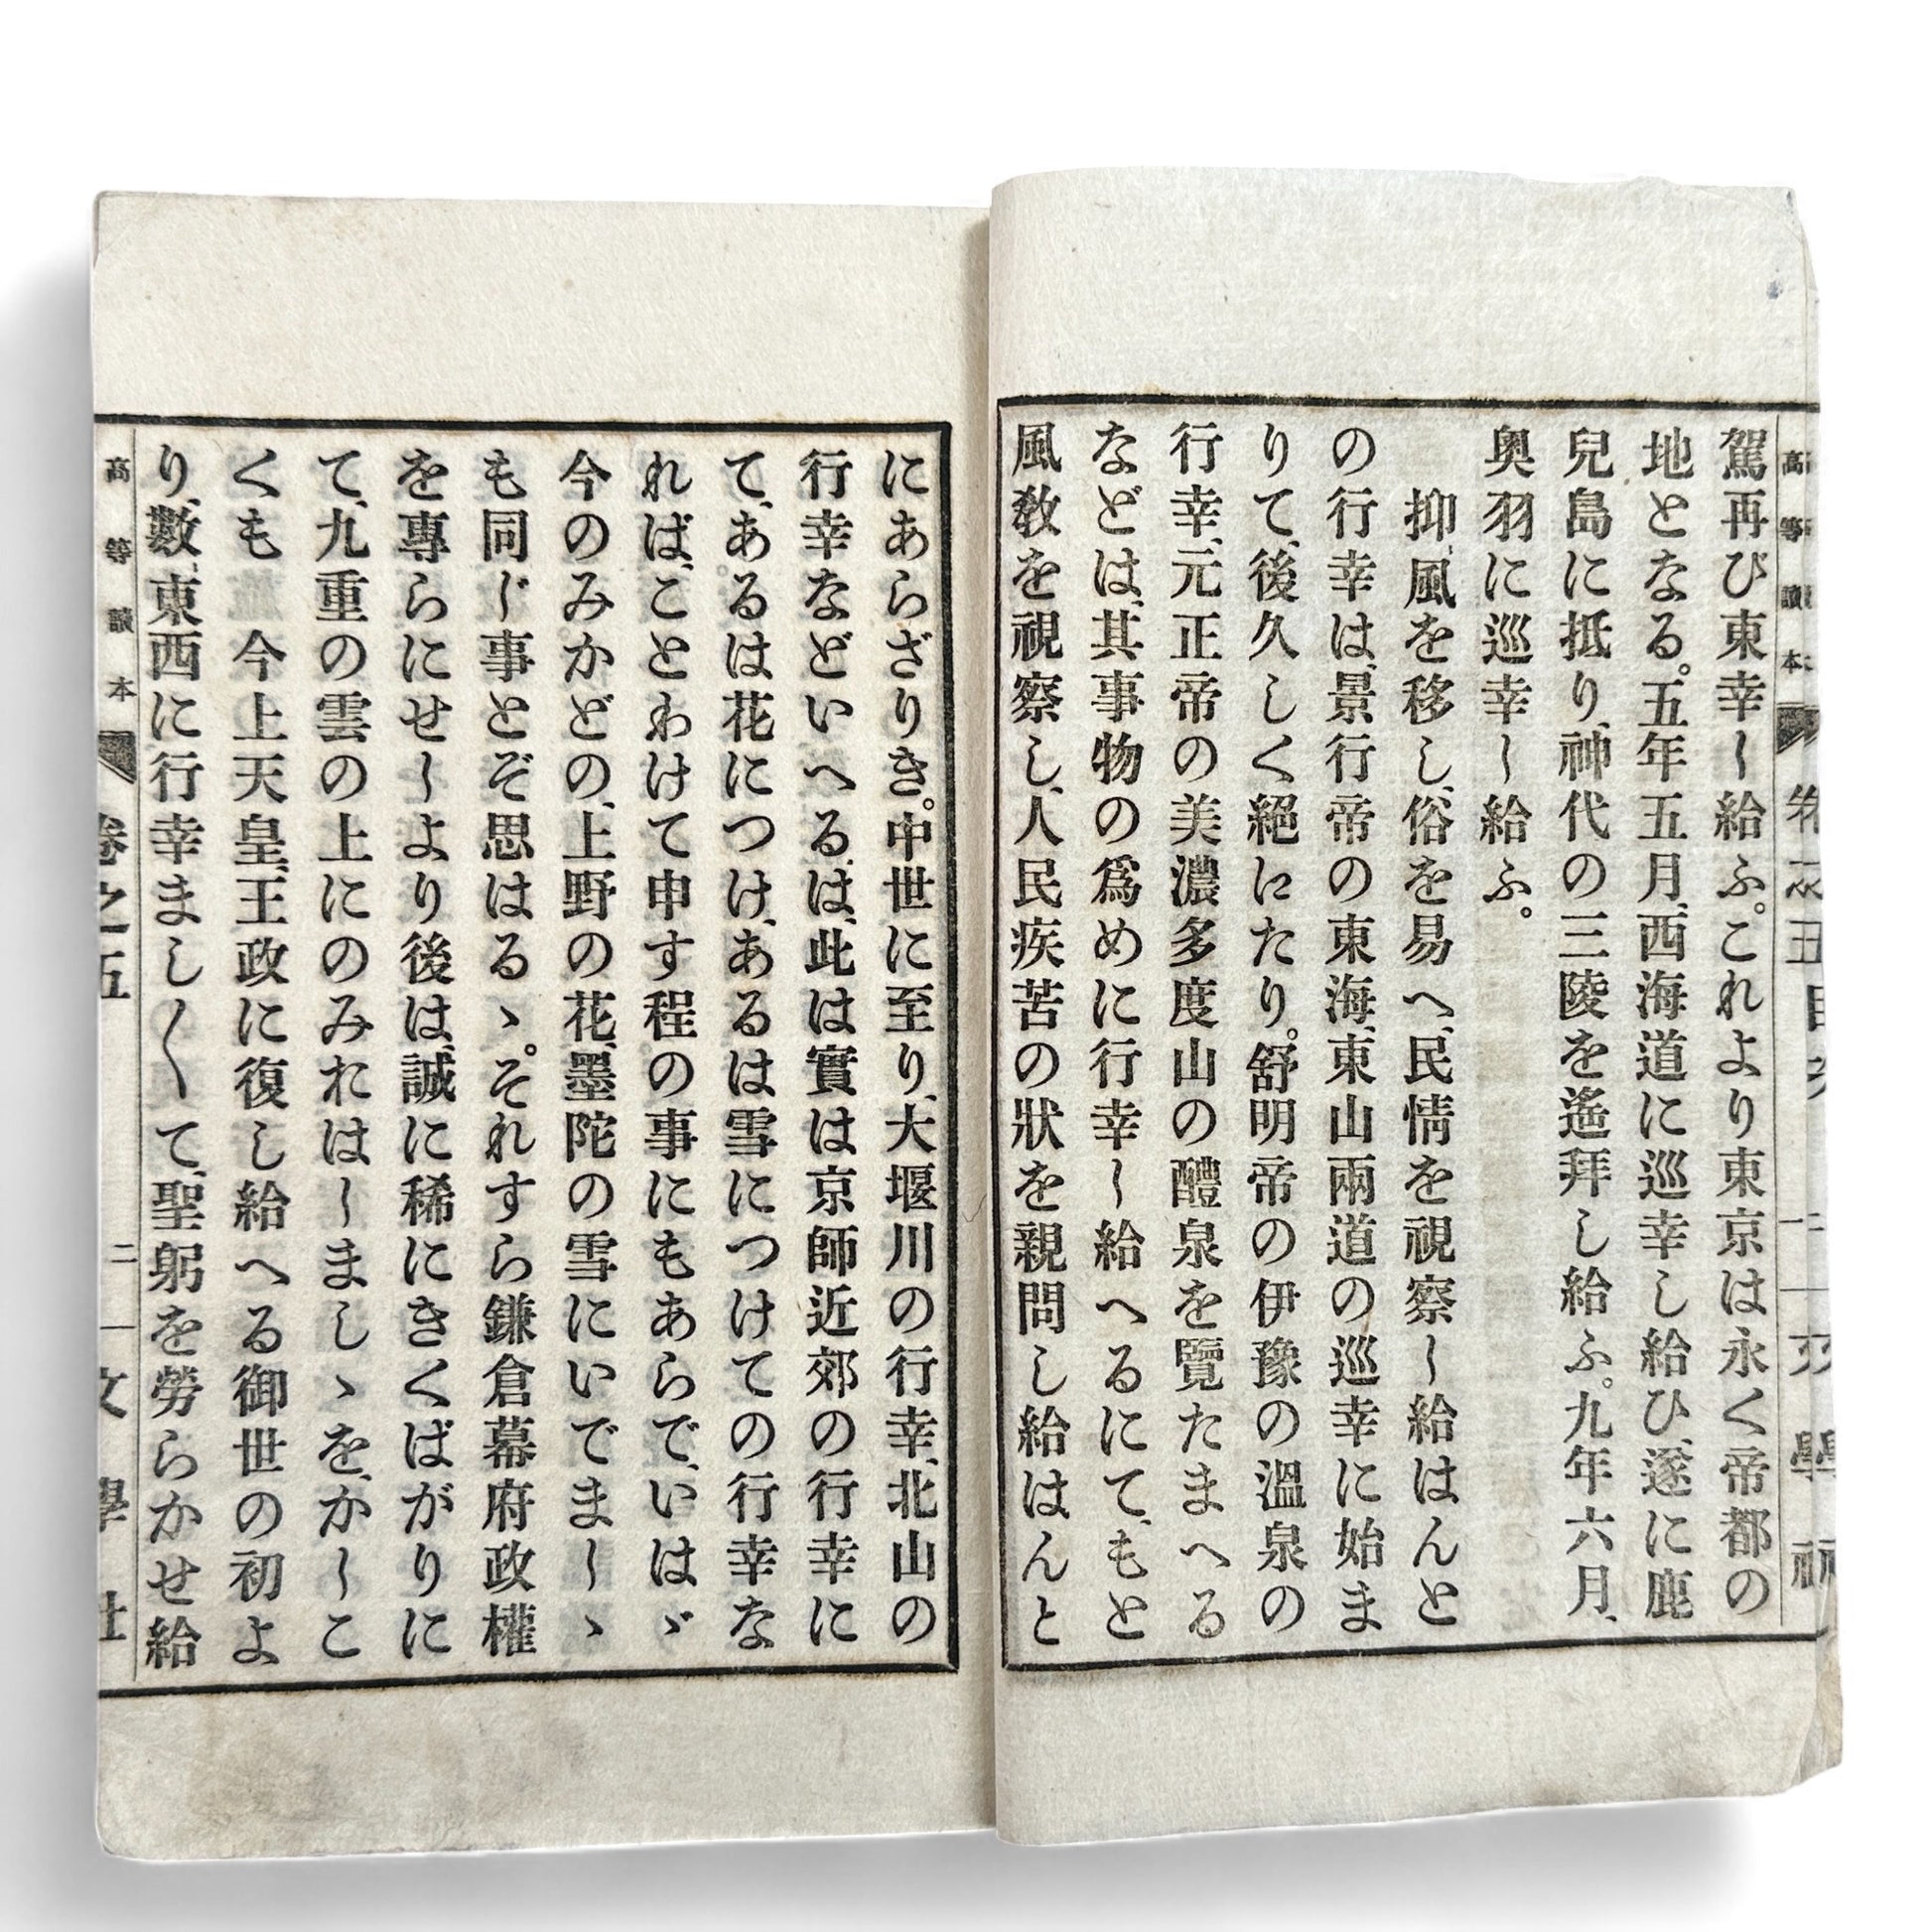 高等讀本
駕再び東幸し給ふ。これより東京は永く帝都の
地となる。五年五月、西海道に巡幸し給ひ、遂に鹿
兒島に抵り、神代の三陵を遙拜し給ふ。九年六月、
奥羽に巡幸し給ふ。
抑、風を移し、俗を易へ、民情を視察し給はんと
の行幸は、景行帝の東海、東山兩道の巡幸に始ま
りて、後久しく絕にたり。舒明帝の伊豫の溫泉の
行幸、元正帝の美濃多度山の醴泉を覽たまへる
などは、其事物の爲めに行幸し給へるにて、もと
風敎を視察し、人民疾苦の狀を親問し給はんと
にあらざりき。中世に至り、大堰川の行幸、北山の
行幸などいへるは、此は實は京師近郊の行幸に
て、あるは花につけ、あるは雪につけての行幸な
れば、ことわけて申す程の事にもあらで、いはゞ
今のみかどの、上野の花、墨陀の雪にいでましゝ
も同じ事とぞ思はるゝ。それすら鎌倉幕府政權
を專らにせしより後は、誠に稀にきくばがりに
て、九重の雲の上にのみれはしましゝを、かしこ
くも　今上天皇、王政に復し給へる御世の初よ
り、數、東西に行幸まし〱て、聖躬を勞らかせ給
高等讀本　卷之五　二　文學社